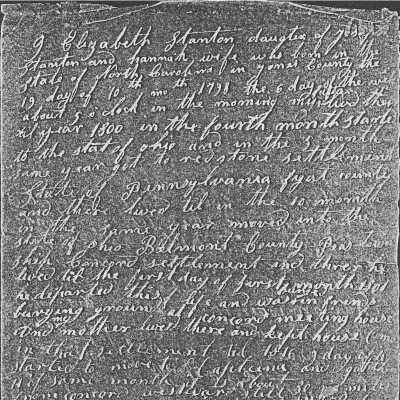 I Elizabeth Stanton daughter of Jos
Stanton and hannah wife who born in the
State of North Carolina in Jones County the
19 day of 10th mo th 1798 the 6 day of the we
about 5 o clock in the morning
til year 1800 in the fourth month starte
to the stat of ohio and in the 5 month
same year got to redstone settlement
State of Pennsylvania fyat county
and there lived til in the 10 month
in the same year moved into the
state of Ohio Belmont County Pea
ship concord settlement and
lived til the first day of first month 1801
he departed this life and was in frends
burying groun at concord meeting house
and my mother lived there and kept house
in that settlement til 1816 9 day of
started to move to Capticina and got
11 of same month about 30 miles
from concor westward still